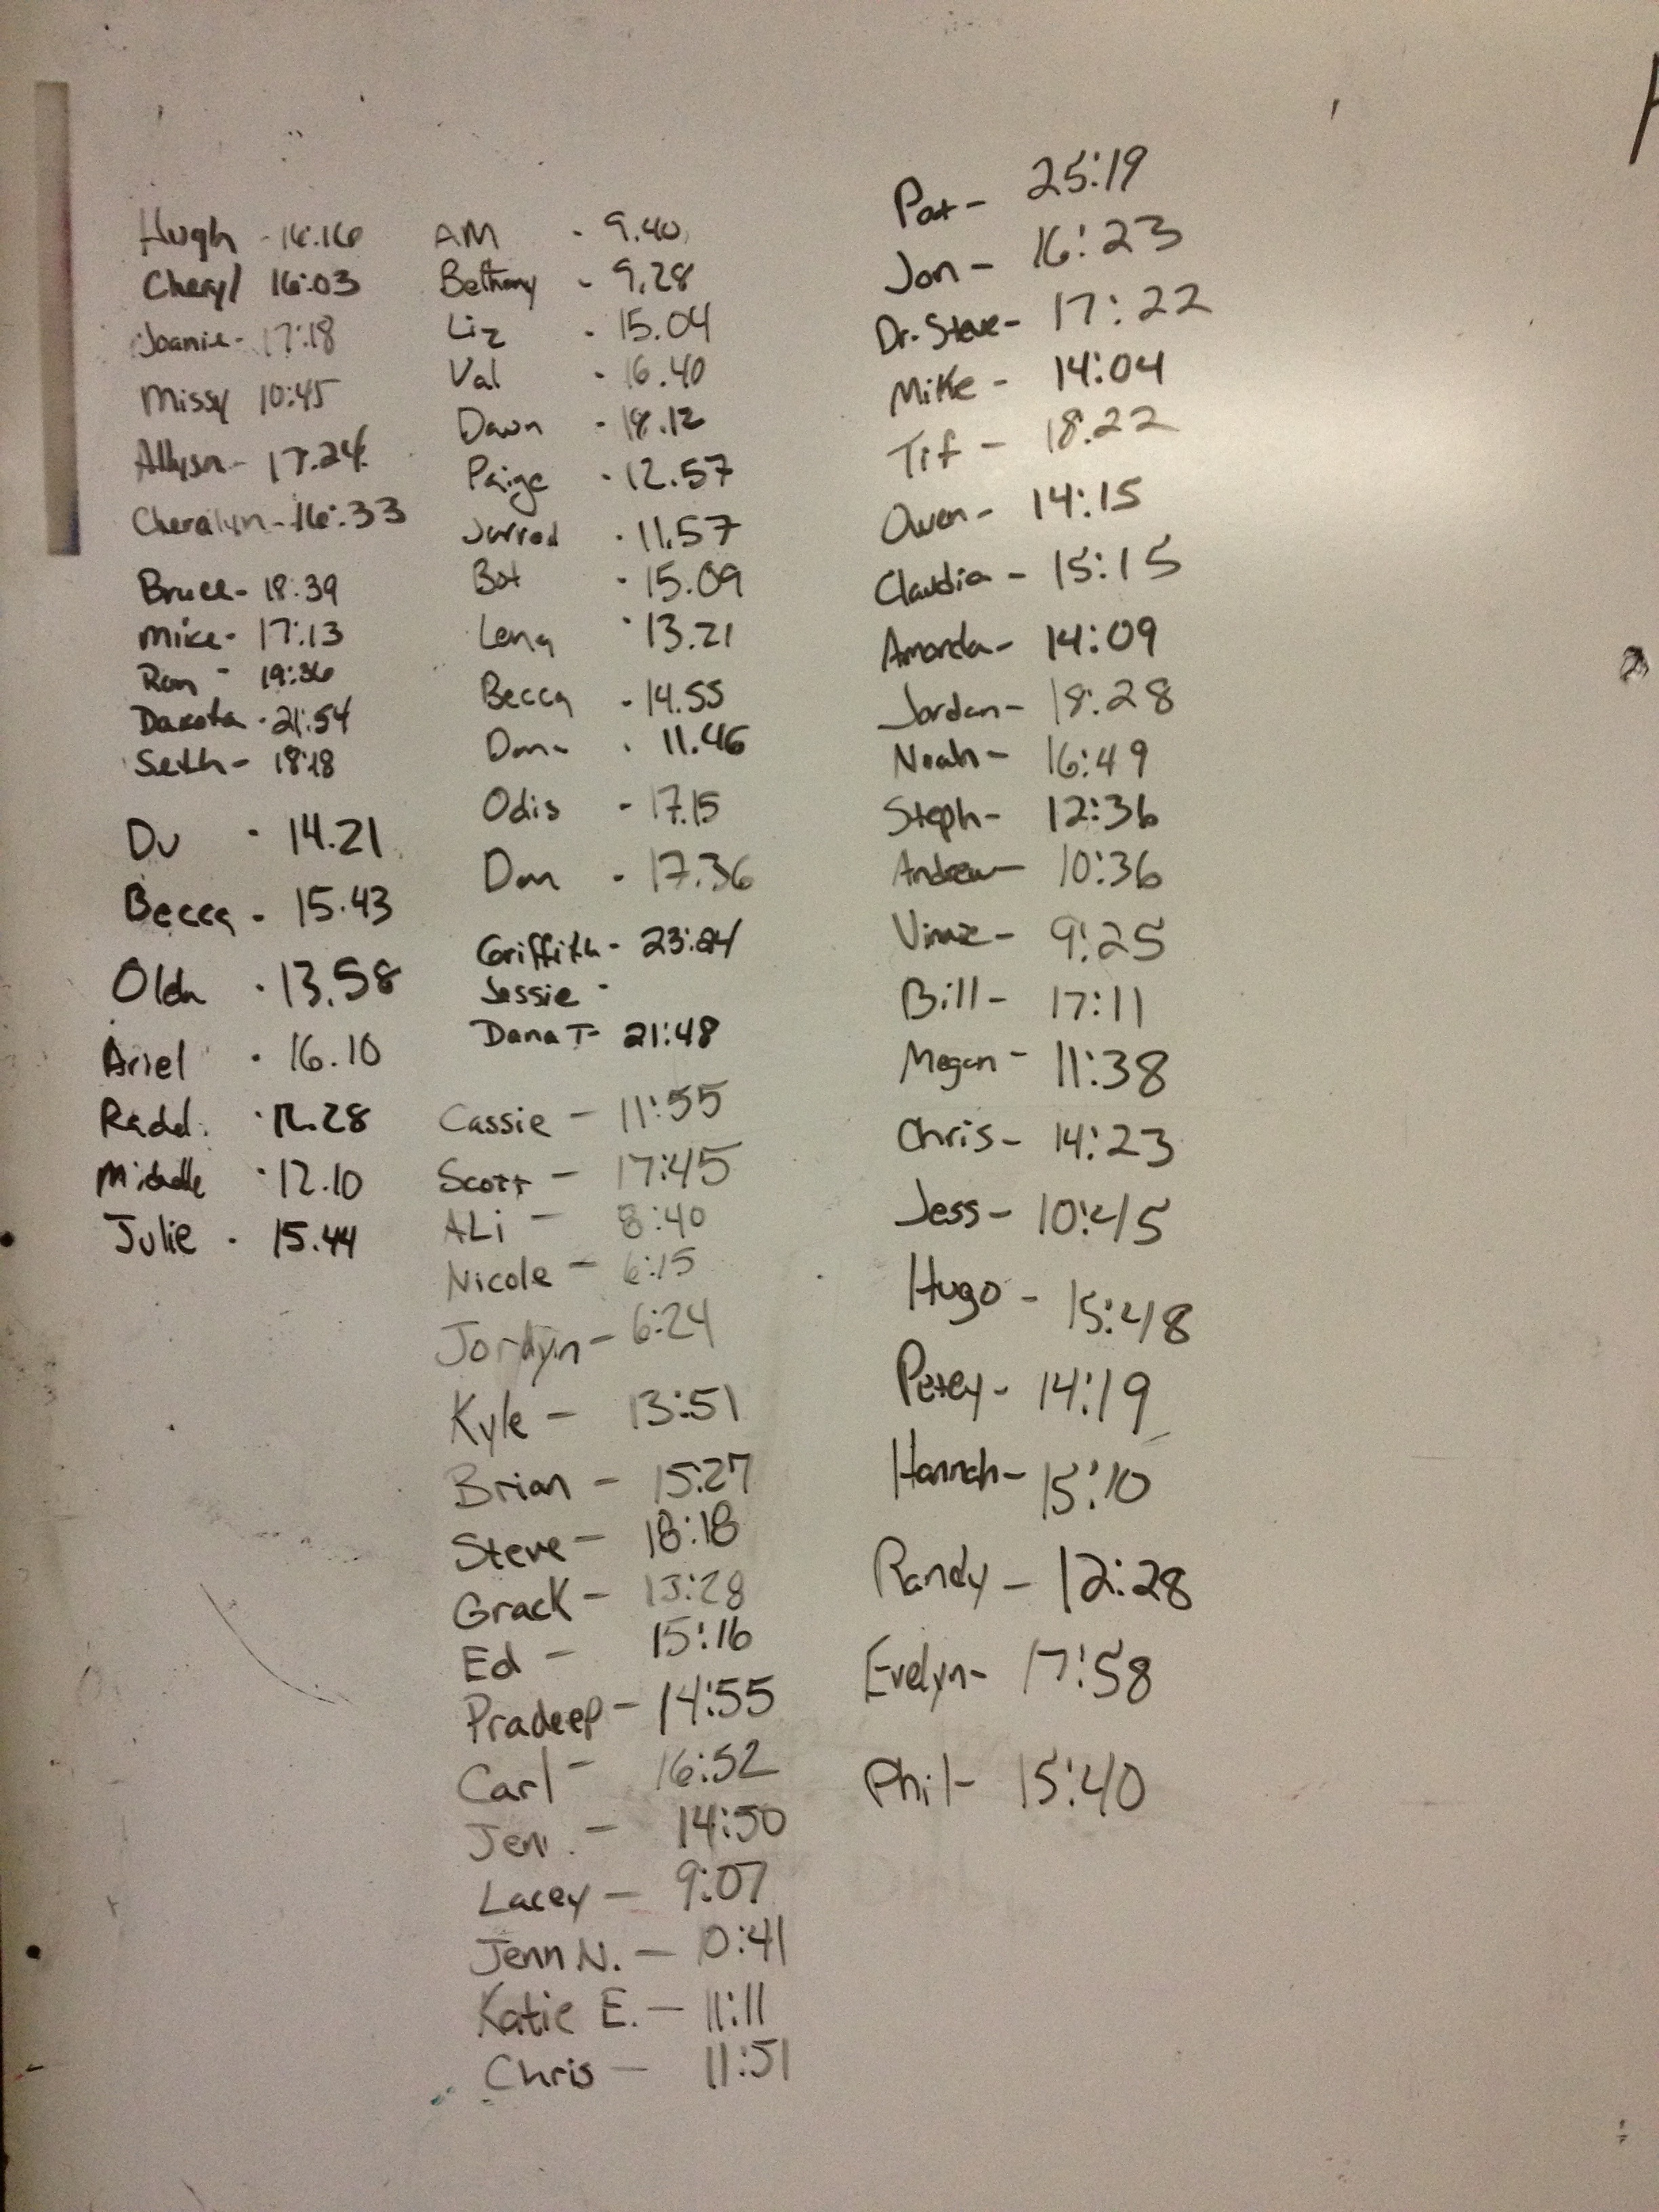 Hugh - 16.16
Cheryl 16:03
Joanie - 17:18
Missy 10:45
Allyson - 17.24
Cheralyn - 16:33
Bruce - 18:39
Mike - 17:13
Ron - 19:36
Dakota - 21:54
Seth - 18:18
Du - 14.21
Becca - 15.43
Olda - 13.58
Ariel - 16.10
Radd. - 12.28
Michelle - 12.10
Julie - 15.44
AM - 9.40
Bethany - 9.28
Liz - 15.04
Val - 16.40
Dawn - 18.12
Paige - 12.57
Jarrod - 11.57
Bot - 15.09
Lena - 13.21
Becca - 14.55
Dana - 11.46
Odis - 17.15
Dan - 17.36
Griffith - 23:24
Jessie -
Dana T - 21:48
Cassie - 11:55
Scott - 17:45
ALi - 8:40
Nicole - 6:15
Jordyn - 6:24
Kyle - 13:51
Brian - 15:27
Steve - 18:18
Grack - 13:28
Ed - 15:16
Pradeep - 14:55
Carl - 16:52
Jen. - 14:50
Lacey - 9:07
Jenn N. - 0:41
Katie E. - 11:11
Chris - 11:51
Pat - 25:19
Jon - 16:23
Dr. Steve - 17:22
Mike - 14:04
Tif - 18.22
Owen - 14:15
Claudia - 15:15
Amanda - 14:09
Jordan - 18:28
Noah - 16:49
Steph - 12:36
Andrew - 10:36
9:25
Bill - 17:11
Megan - 11:38
Chris - 14:23
Jess - 10:45
Hugo - 15:48
Petey - 14:19
Hannah - 15:10
Randy - 12:28
Evelyn - 17:58
Phil - 15:40